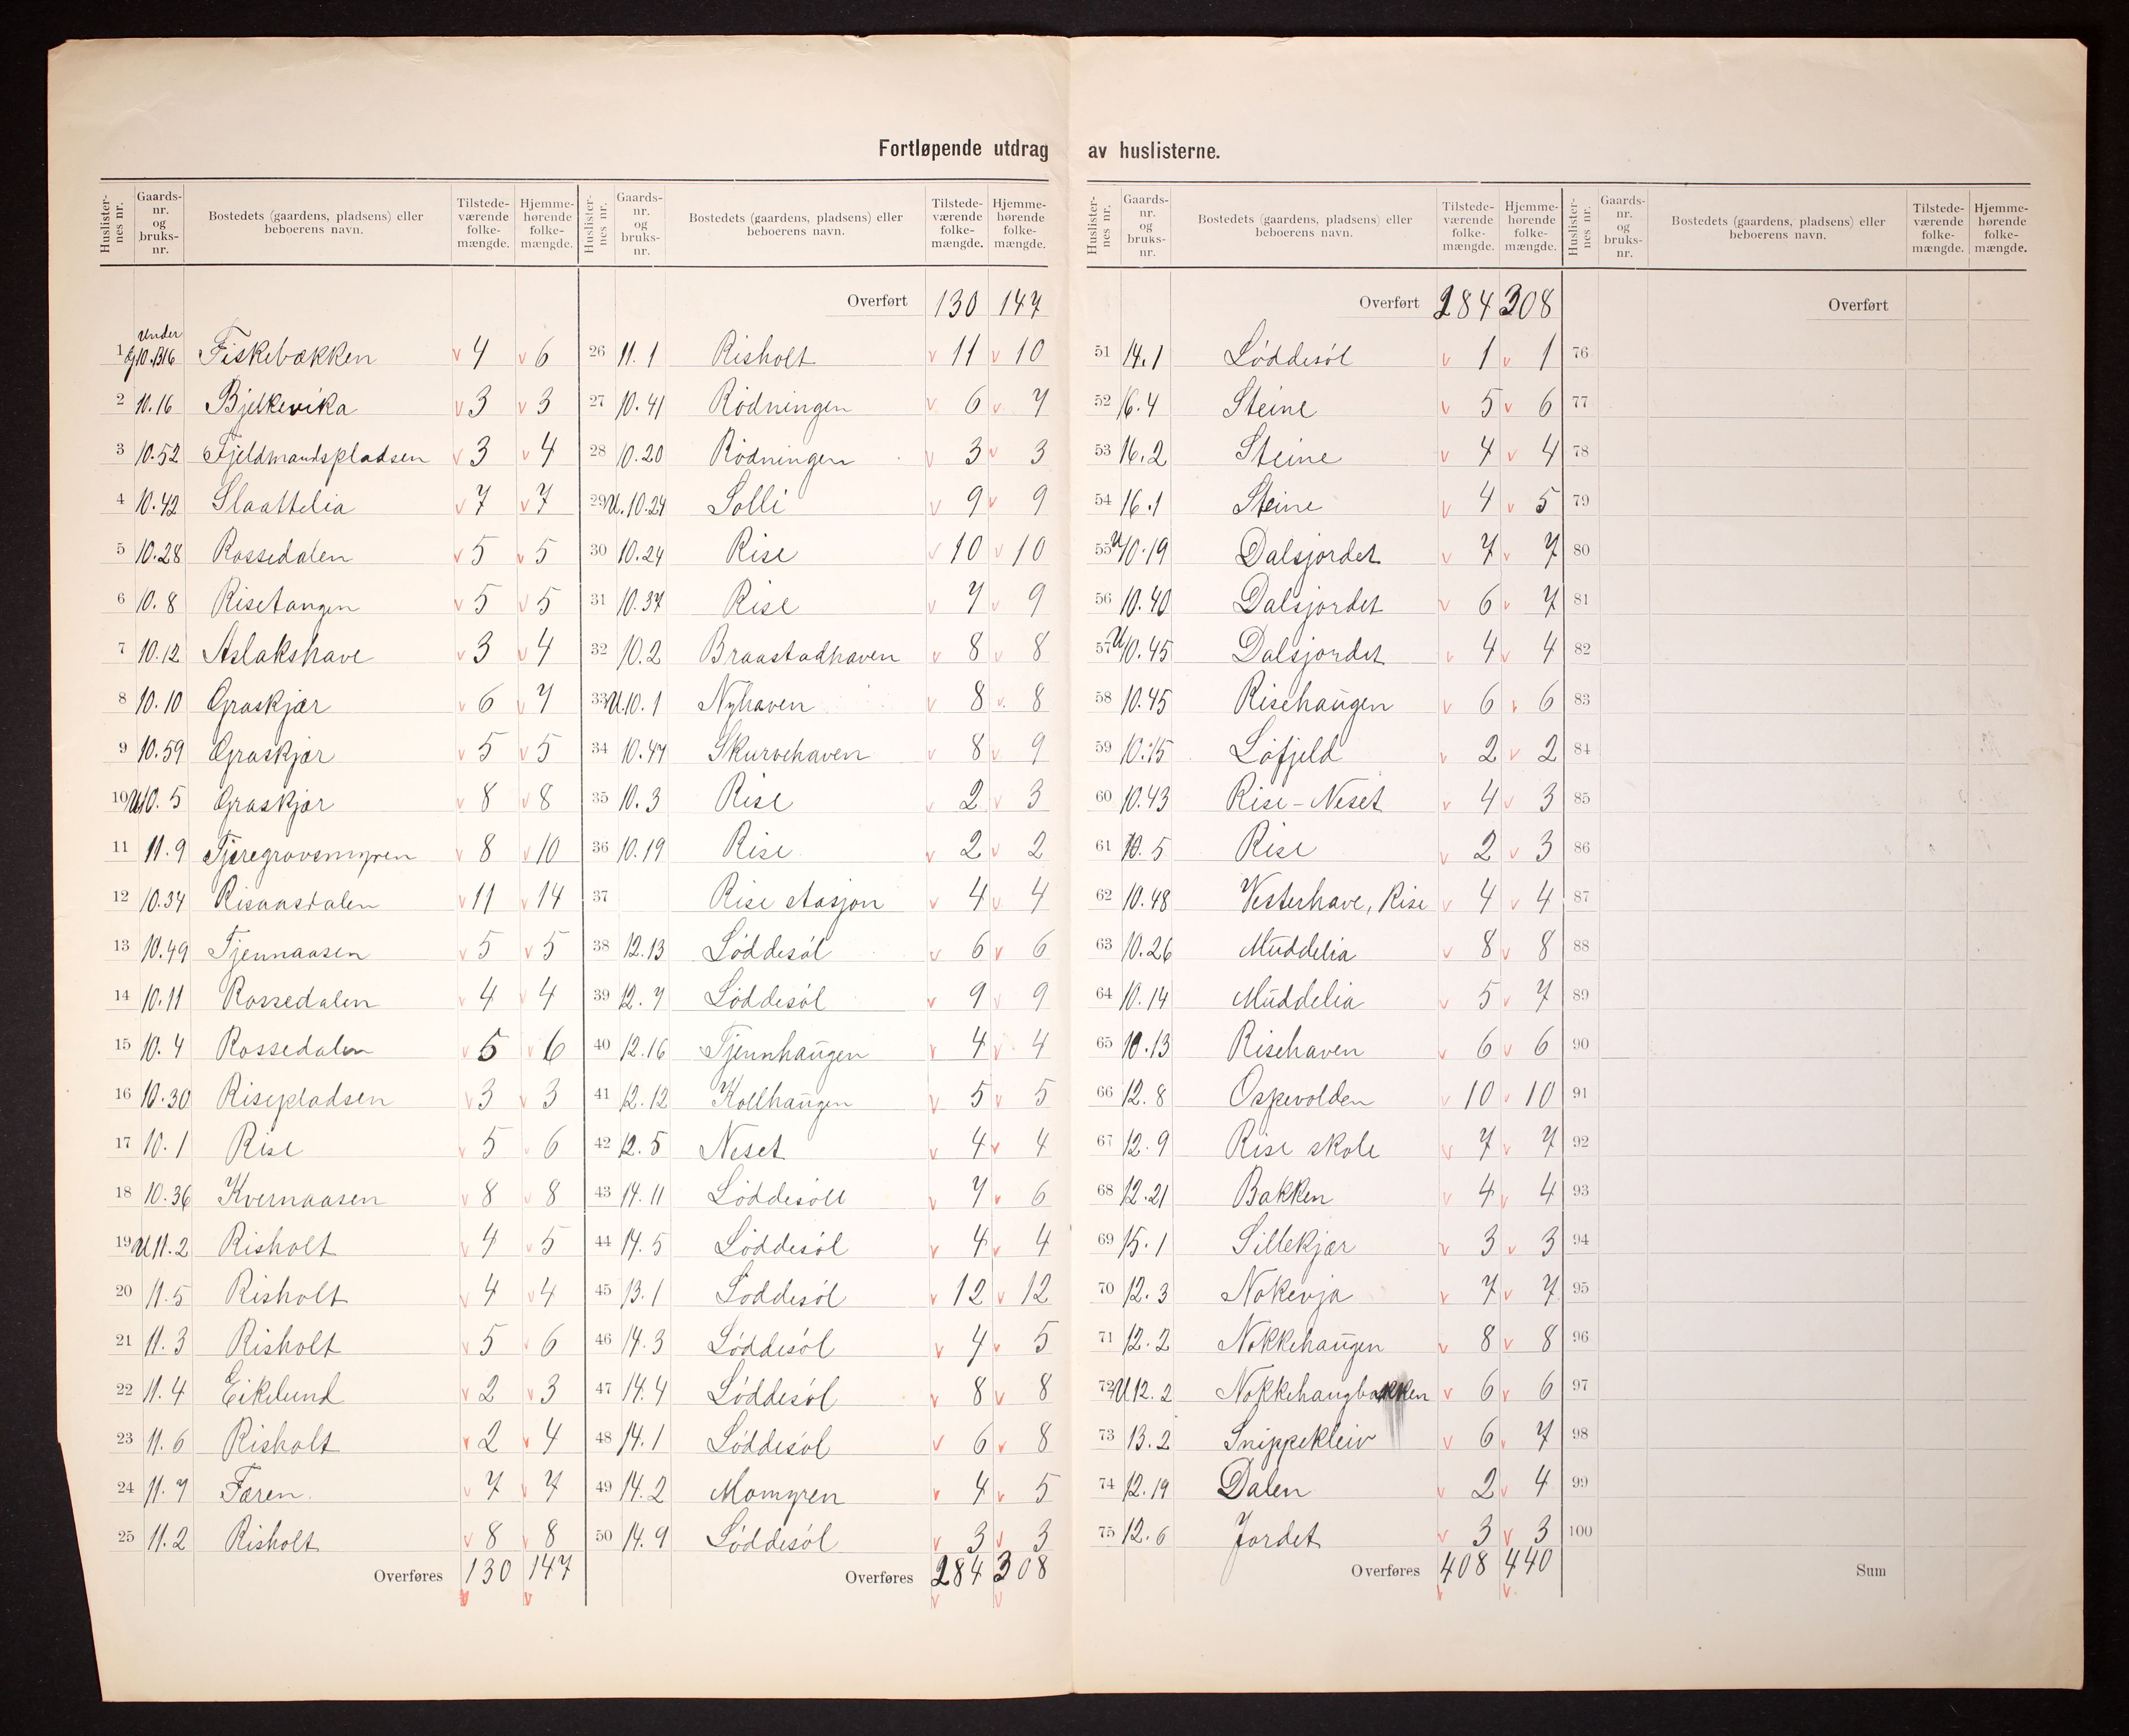 Fortløpende utdrag av huslisterne.
Huslister-nes nr. Gaards-nr. og bruks-nr. Bostedets (gaardens, pladsens) eller beboerens navn. Tilstede-værende folke-mængde. Hjemme-hørende folke-mængde.
Under
1 g 10.B16 Fiskebækken v 4 v 6
2 10.16 Bjelkevika v 3 v 3
3 10.52 Fjeldmandspladsen v 3 v 4
4 10.42 Slaattelia v 7 v 7
5 10.28 Rossedalen v 5 v 5
6 10.8 Risetangen v 5 v 5
7 10.12 Aslakshave v 3 v 4
8 10.10 Graskjær v 6 v 7
9 10.59 Graskjær v 5 v 5
10 U10.5 Graskjær v 8 v 8
11 11.9 Tjæregravsmyren v 8 v 10
12 10.34 Risaasdalen v 11 v 14
13 10.49 Tjennaasen v 5 v 5
14 10.11 Rossedalen v 4 v 4
15 10.4 Rossedalen v 5 v 6
16 10.30 Risepladsen v 3 v 3
17 10.1 Rise v 5 v 6
18 10.36 Kvernaasen v 8 v 8
19 U11.2 Risholt v 4 v 5
20 11.5 Risholt v 4 v 4
21 11.3 Risholt v 5 v 6
22 11.4 Eikelund v 2 v 3
23 11.6 Risholt v 2 v 4
24 11.7 Faren. v 7 v 7
25 11.2 Risholt v 8 v 8
Overføres 130 147
v v
Huslister-nes nr. Gaards-nr. og bruks-nr. Bostedets (gaardens, pladsens) eller beboerens navn. Tilstede-værende folke-mængde. Hjemme-hørende folke-mængde.
Overført 130 147
26 11.1 Risholt v 11 v 10
27 10.41 Rødningen v 6 v 7
28 10.20 Rødningen v 3 v 3
29 U.10.24 Solli v 9 v 9
30 10.24 Rise v 10 v 10
31 10.37 Rise v 7 v 9
32 10.2 Braastadhaven v 8 v 8
33 U.10.1 Nyhaven v 8 v 8
34 10.47 Skurvehaven v 8 v 9
35 10.3 Rise v 2 v 3
36 10.19 Rise v 2 v 2
37 Rise stasjon v 4 v 4
38 12.13 Løddesøl v 6 v 6
39 12.7 Løddesøl v 9 v 9
40 12.16 Tjennhaugen v 4 v 4
41 12.12 Kollhaugen v 5 v 5
42 12.5 Neset v 4 v 4
43 14.11 Løddesøll v 7 v 6
44 14.5 Løddesøl v 4 v 4
45 13.1 Løddesøl v 12 v 12
46 14.3 Løddesøl v 4 v 5
47 14.4 Løddesøl v 8 v 8
48 14.1 Løddesøl v 6 v 8
49 14.2 Momyren v 4 v 5
50 14.9 Løddesøl v 3 v 3
Overføres 284 308
v v
Huslister-nes nr. Gaards-nr. og bruks-nr. Bostedets (gaardens, pladsens) eller beboerens navn. Tilstede-værende folke-mængde. Hjemme-hørende folke-mængde.
Overført 284 308
51 14.1 Løddesøl v 1 v 1
52 16.4 Steine v 5 v 6
53 16.2 Steine v 4 v 4
54 16.1 Steine v 4 v 5
55 U10.19 Dalsjordet v 7 v 7
56 10.40 Dalsjordet v 6 v 7
57 U10.45 Dalsjordet v 4 v 4
58 10.45 Risehaugen v 6 v 6
59 10.15 Løfjeld v 2 v 2
60 10.43 Rise-Neset v 4 v 3
61 10.5 Rise v 2 v 3
62 10.48 Vesterhave, Rise v 4 v 4
63 10.26 Muddelia v 8 v 8
64 10.14 Muddelia v 5 v 7
65 10.13 Risehaven v 6 v 6
66 12.8 Ospevolden v 10 v 10
67 12.9 Rise skole v 7 v 7
68 12.21 Bakken v 4 v 4
69 15.1 Sillekjær v 3 v 3
70 12.3 Nokevja v 7 v 7
71 12.2 Nokkehaugen v 8 v 8
72 U12.2 Nokkehaugbakken v 6 v 6
73 13.2 Snippekleiv v 6 v 7
74 12.19 Dalen v 2 v 4
75 12.6 Jordet v 3 v 3
Overføres 408 440
v v
Huslister-nes nr. Gaards-nr. og bruks-nr. Bostedets (gaardens, pladsens) eller beboerens navn. Tilstede-værende folke-mængde. Hjemme-hørende folke-mængde.
Overført
76
77
78
79
80
81
82
83
84
85
86
87
88
89
90
91
92
93
94
95
96
97
98
99
100
Sum